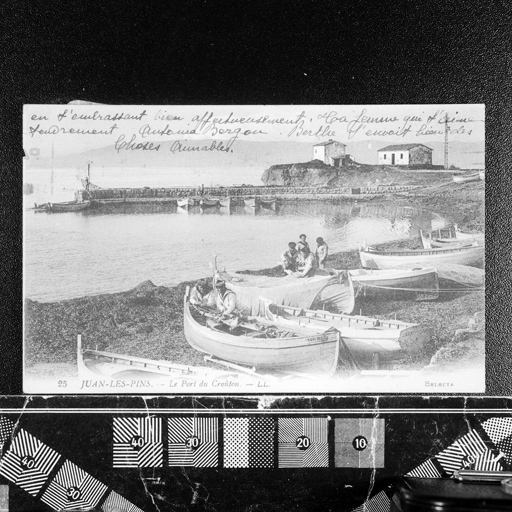 en t'embrassant bien affectueusement. Ta femme que t'aime
tendrement Antonia Bergon. Berthe t'envoit bien des
Choses Aimables.
25 JUAN-LES-PINS. — Le Port du Crouton. — LL.
SELECTA
40
30
20
10
40
30
40